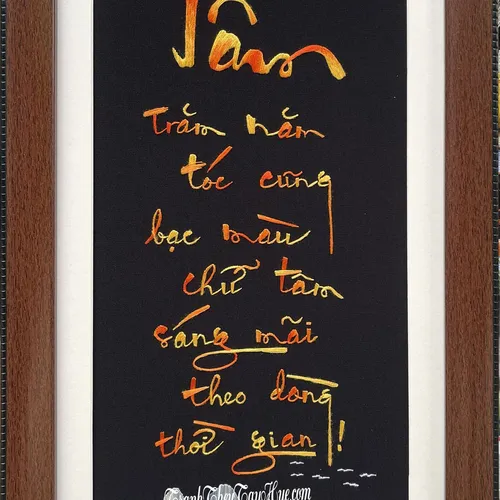 Tâm
Trăm năm
tóc cũng
bạc màu
chữ tâm
sáng mãi
theo dòng
thời gian!
TranhThuTayHue.com